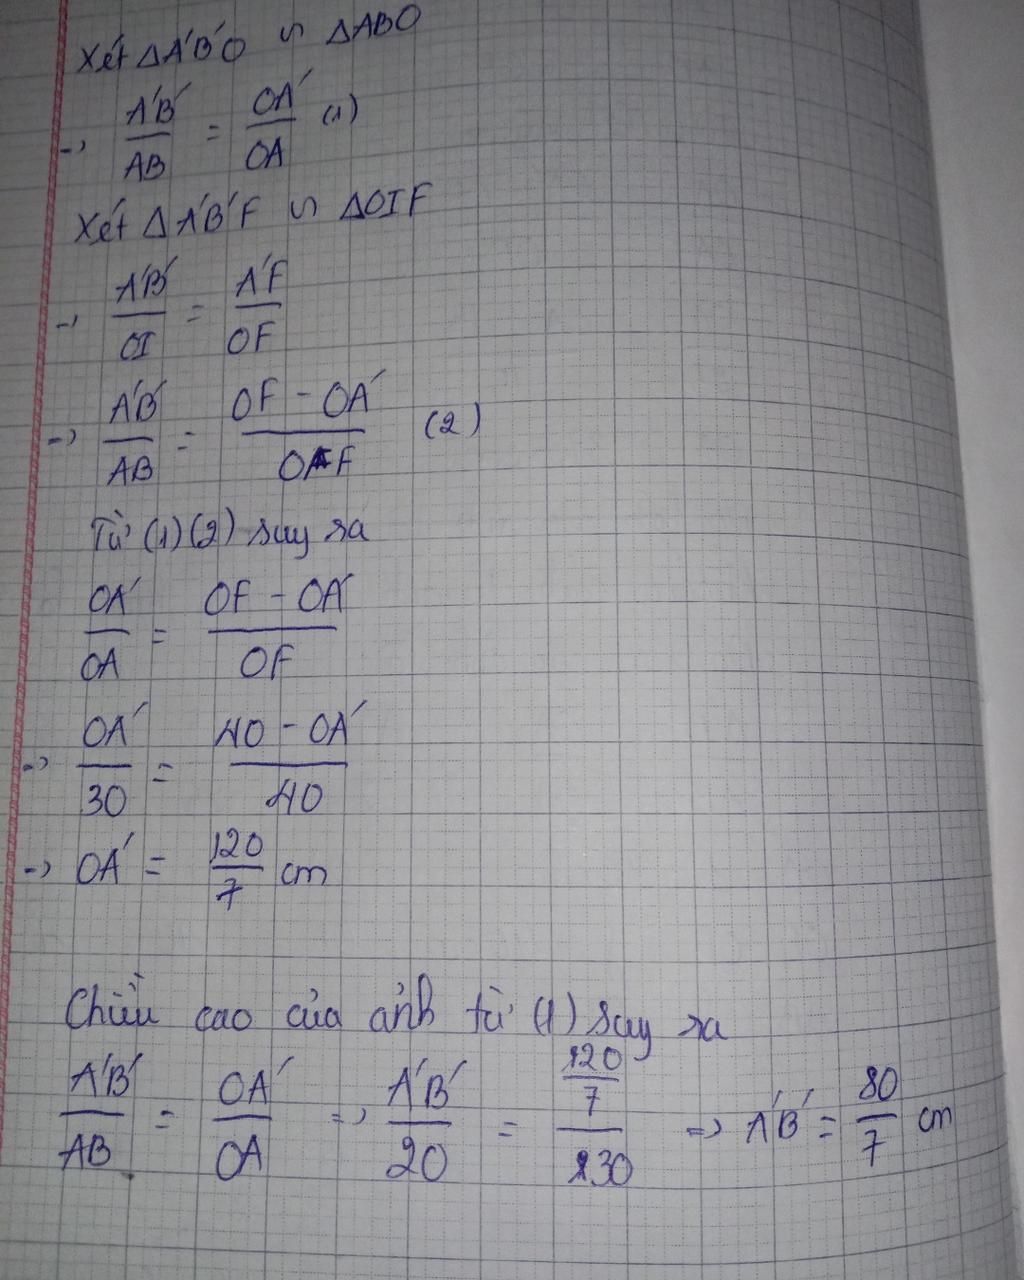 Xét ΔA'B'O ∽ ΔABO
→ A'B'/AB = OA'/OA (1)
Xét ΔA'B'F ∽ ΔOIF
→ A'B'/OI = A'F/OF
→ A'B'/AB = OF - OA'/OF (2)
Từ (1)(2) suy ra
OA'/OA = OF - OA'/OF
→ OA'/30 = 40 - OA'/40
→ OA' = 120/7 cm
Chiều cao của ảnh từ (1) suy ra
A'B'/AB = OA'/OA => A'B'/20 = 120/7/30 => A'B' = 80/7 cm